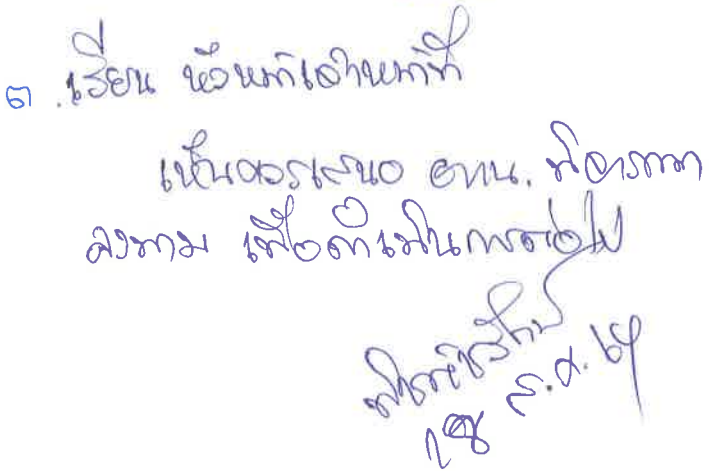 ๓. เรียน หัวหน้าเจ้าหน้าที่
เห็นควรเสนอ อทน. พิจารณา
ลงนาม เพื่อดำเนินการต่อไป
๑๘ ส.ค. ๖๕